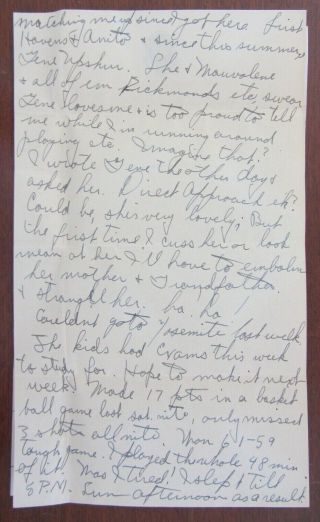 matching me up since I got here. first
Havens & Anita & since this summer,
Gene Upshur. She & Mauvolene
& all of em Richmonds etc, swear
Gene loves me & is too proud to tell
me while I'm running around
playing etc. Imagine that?
I wrote Gene the other day &
asked her. Direct Approach eh?
Could be, she's very lovely; But
the first time I cuss her or look
mean at her I'll have to embalm
her mother & Grandfather
& strangle her. ha. ha!
Couldn't go to Yosemite last week.
The kids had Exams this week
to study for. Hope to make it next
week. Made 17 pts in a basket
ball game last sat. nite, only missed
3 shots all nite. Won 61-59
tough game. I played the whole 48 min
of it. Was I tired! I slept till
5 P.M. Sun afternoon as a result